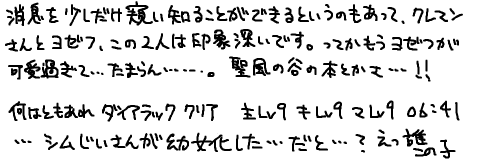 消息を少しだけ窺い知ることができるというのもあって、クレマン
さんとヨゼフ、この2人は印象深いです。ってかもうヨゼフが
可愛過ぎて…たまらん……。聖風の谷の本とかさ…!!
何はともあれ ダイアラック クリア 主Lv9 キLv9 マLv9 06:41
…シムじいさんが幼女化した…だと…？えっ誰この子